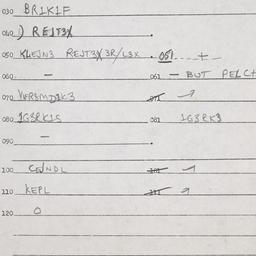 030 BR1K1F
040 ) REJT3X
050 KLEJN3 REJT3X 3R/L3X . 051 +
060 — 061 — BUT PELCH
070 VERSMD3K3 071
080 1G3RK1S 081 1G3RK3
090 —
100 CEJNDL 101
110 KEPL 111
120 O